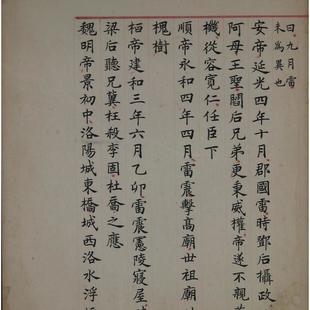 曰九月雷
未為異也
安帝延光四年十月郡國雷時鄧后攝政
阿母王聖閻后兄弟更秉威權帝遂不親萬
機從容寬仁任臣下
順帝永和四年四月雷震擊高廟世祖廟
槐樹
桓帝建和三年六月乙卯雷震憲陵寢屋
梁后聽兄冀枉殺李固杜喬之應
魏明帝景初中洛陽城東橋城西洛水浮